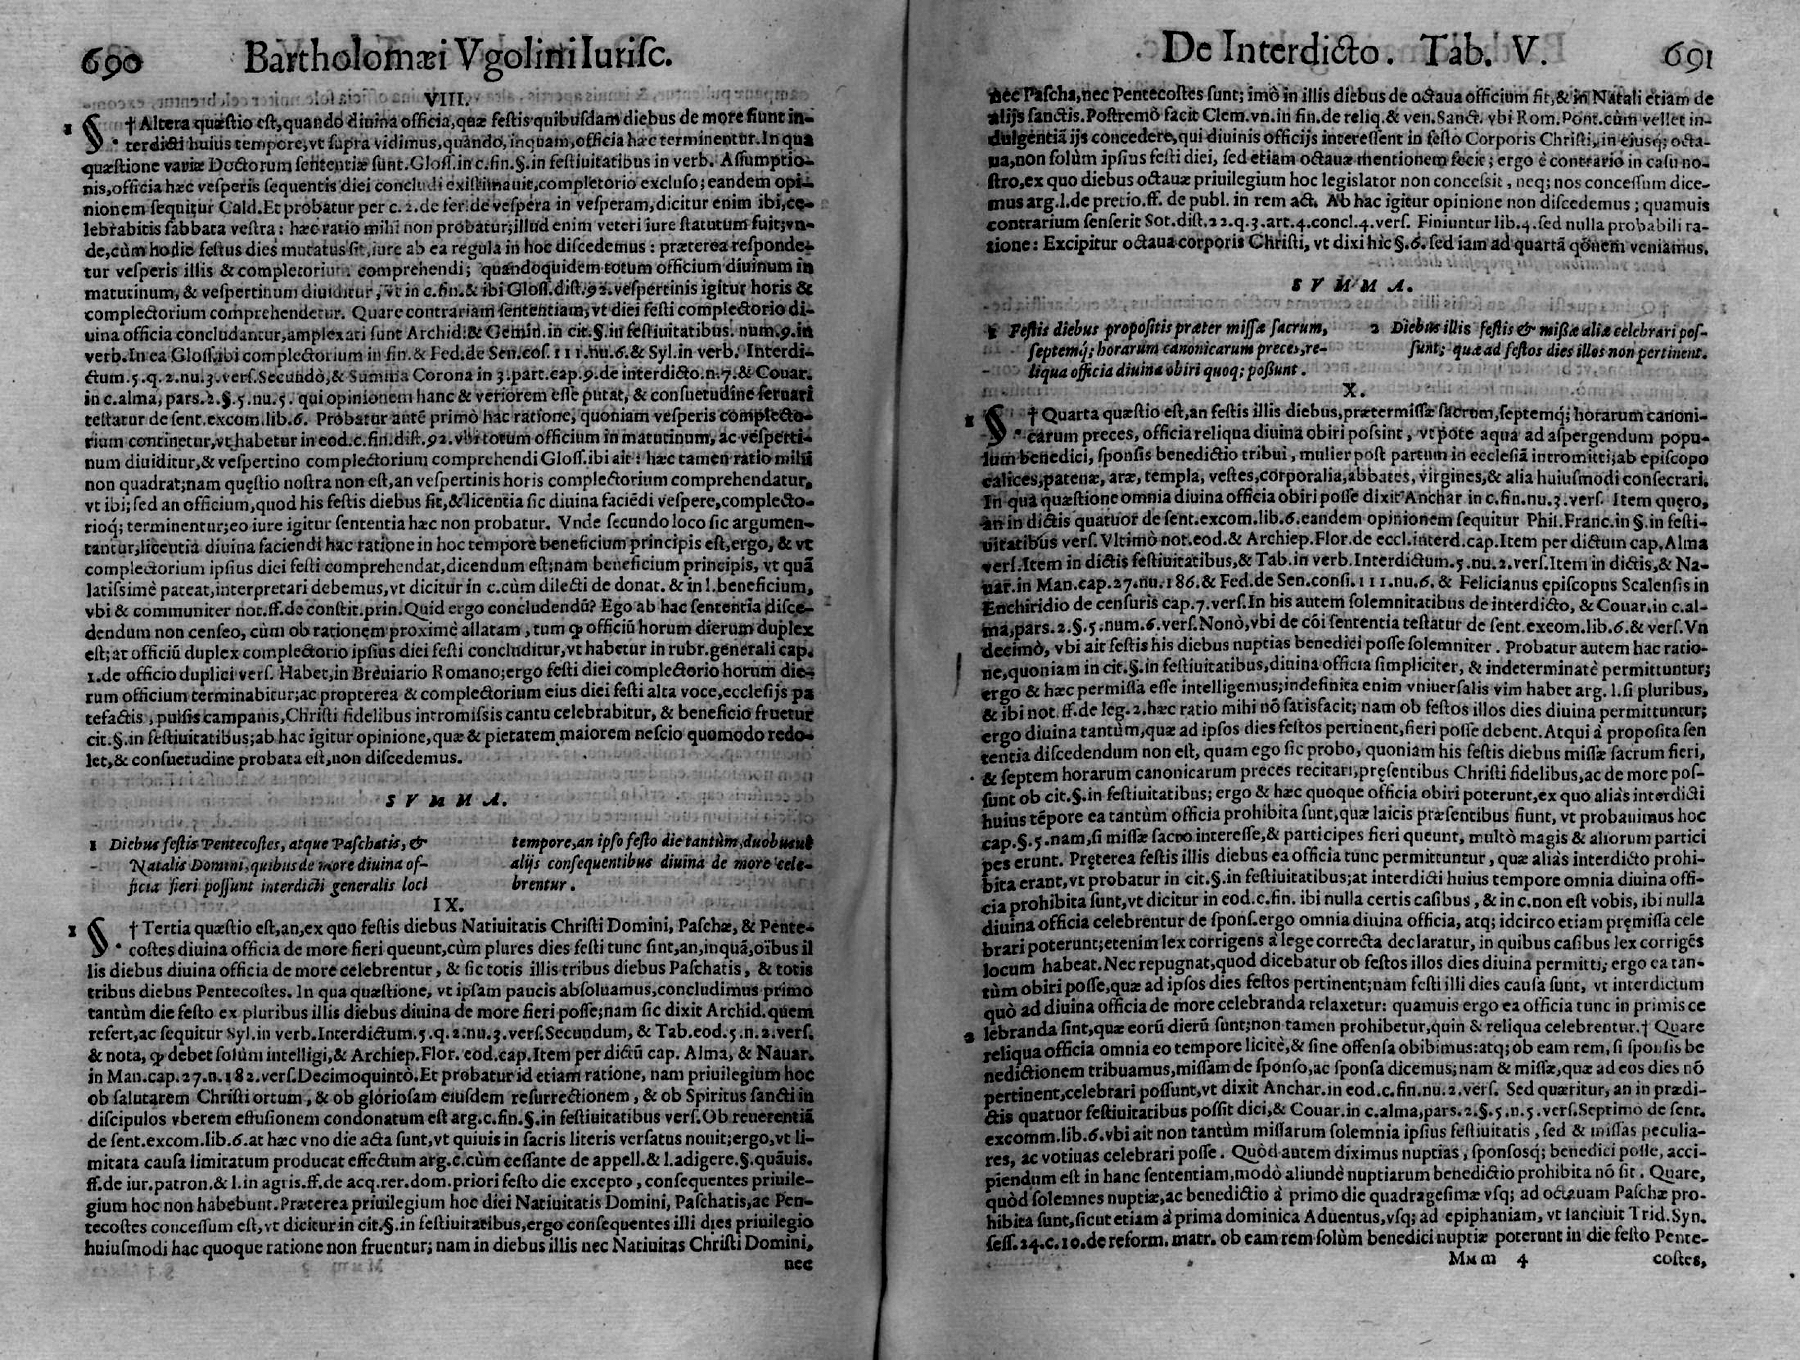 690 Bartholomæi Vgolini Iurisc.
VIII.
1 §. † Altera quæstio est, quando diuina officia, quæ festis quibusdam diebus de more fiunt in-
terdicti huius tempore, vt supra vidimus, quando, inquam, officia hæc terminentur. In qua
quæstione variæ Doctorum sententiæ sunt. Gloss. in c. fin. §. in festiuitatibus in verb. Assumptio-
nis, officia hæc vesperis sequentis diei concludi existimauit, completorio excluso; eandem opi-
nionem sequitur Cald. Et probatur per c. 2. de fer. de vespera in vesperam, dicitur enim ibi, cę-
lebrabitis sabbata vestra: hæc ratio mihi non probatur; illud enim veteri iure statutum fuit; vn-
de, cùm hodie festus dies mutatus sit, iure ab ea regula in hoc discedemus: præterea responde-
tur vesperis illis & completorium comprehendi; quandoquidem totum officium diuinum in
matutinum, & vespertinum diuiditur, vt in c. fin. & ibi Gloss. dist. 92. vespertinis igitur horis &
complectorium comprehendetur. Quare contrariam sententiam, vt diei festi complectorio di-
uina officia concludantur, amplexati sunt Archid. & Gemin. in cit. §. in festiuitatibus. num. 9. in
verb. In ea Gloss. ibi complectorium in fin. & Fed. de Sen. cos. 111. nu. 6. & Syl. in verb. Interdi-
ctum. 5. q. 2. nu. 3. vers. Secundò, & Summa Corona in 3. part. cap. 9. de interdicto. n. 7. & Couar.
in c. alma, pars. 2. §. 5. nu. 5. qui opinionem hanc & veriorem esse putat, & consuetudine seruari
testatur de sent. excom. lib. 6. Probatur autē primò hac ratione, quoniam vesperis complecto-
rium continetur, vt habetur in eod. c. fin. dist. 92. vbi totum officium in matutinum, ac vesperti-
num diuiditur, & vespertino complectorium comprehendi Gloss. ibi ait: hæc tamen ratio mihi
non quadrat; nam quęstio nostra non est, an vespertinis horis complectorium comprehendatur,
vt ibi; sed an officium, quod his festis diebus fit, & licentia sic diuina faciēdi vespere, complecto-
rioq; terminentur; eo iure igitur sententia hæc non probatur. Vnde secundo loco sic argumen-
tantur, licentia diuina faciendi hac ratione in hoc tempore beneficium principis est, ergo, & vt
complectorium ipsius diei festi comprehendat, dicendum est; nam beneficium principis, vt quā
latissimè pateat, interpretari debemus, vt dicitur in c. cùm dilecti de donat. & in l. beneficium,
vbi & communiter not. ff. de constit. prin. Quid ergo concludendū? Ego ab hac sententia disce-
dendum non censeo, cùm ob rationem proximè allatam, tum ꝙ officiū horum dierum duplex
est; at officiū duplex complectorio ipsius diei festi concluditur, vt habetur in rubr. generali cap.
1. de officio duplici vers. Habet, in Breuiario Romano; ergo festi diei complectorio horum die-
rum officium terminabitur; ac propterea & complectorium eius diei festi alta voce, ecclesijs pa
tefactis, pulsis campanis, Christi fidelibus intromissis cantu celebrabitur, & beneficio fruetur
cit. §. in festiuitatibus; ab hac igitur opinione, quæ & pietatem maiorem nescio quomodo redo-
let, & consuetudine probata est, non discedemus.
SVMMA.
1 Diebus festis Pentecostes, atque Paschatis, &
Natalis Domini, quibus de more diuina of-
ficia fieri possunt interdicti generalis loci
tempore, an ipso festo die tantùm, duobusue
alijs consequentibus diuina de more cele-
brentur.
IX.
1 §. † Tertia quæstio est, an, ex quo festis diebus Natiuitatis Christi Domini, Paschæ, & Pente-
costes diuina officia de more fieri queunt, cùm plures dies festi tunc sint, an, inquā, oībus il
lis diebus diuina officia de more celebrentur, & sic totis illis tribus diebus Paschatis, & totis
tribus diebus Pentecostes. In qua quæstione, vt ipsam paucis absoluamus, concludimus primo
tantùm die festo ex pluribus illis diebus diuina de more fieri posse; nam sic dixit Archid. quem
refert, ac sequitur Syl. in verb. Interdictum. 5. q. 2. nu. 3. vers. Secundum, & Tab. eod. 5. n. 2. vers.
& nota, ꝙ debet solùm intelligi, & Archiep. Flor. eod. cap. Item per dictū cap. Alma, & Nauar.
in Man. cap. 27. n. 182. vers. Decimoquintò. Et probatur id etiam ratione, nam priuilegium hoc
ob salutarem Christi ortum, & ob gloriosam eiusdem resurrectionem, & ob Spiritus sancti in
discipulos vberem effusionem condonatum est arg. c. fin. §. in festiuitatibus vers. Ob reuerentiā
de sent. excom. lib. 6. at hæc vno die acta sunt, vt quiuis in sacris literis versatus nouit; ergo, vt li-
mitata causa limitatum producat effectum arg. c. cùm cessante de appell. & l. adigere. §. quāuis.
ff. de iur. patron. & l. in agris. ff. de acq. rer. dom. priori festo die excepto, consequentes priuile-
gium hoc non habebunt. Præterea priuilegium hoc diei Natiuitatis Domini, Paschatis, ac Pen-
tecostes concessum est, vt dicitur in cit. §. in festiuitatibus, ergo consequentes illi dies priuilegio
huiusmodi hac quoque ratione non fruentur; nam in diebus illis nec Natiuitas Christi Domini,
nec
De Interdicto. Tab. V. 691
nec Pascha, nec Pentecostes sunt; imò in illis diebus de octaua officium fit, & in Natali etiam de
alijs sanctis. Postremò facit Clem. vn. in fin. de reliq. & ven. Sanct. vbi Rom. Pont. cùm vellet in-
dulgentiā ijs concedere, qui diuinis officijs interessent in festo Corporis Christi, in ejusq; octa-
ua, non solùm ipsius festi diei, sed etiam octauæ mentionem fecit; ergo è contrario in casu no-
stro, ex quo diebus octauæ priuilegium hoc legislator non concessit, neq; nos concessum dice-
mus arg. l. de pretio. ff. de publ. in rem act. Ab hac igitur opinione non discedemus; quamuis
contrarium senserit Sot. dist. 22. q. 3. art. 4. concl. 4. vers. Finiuntur lib. 4. sed nulla probabili ra-
tione: Excipitur octaua corporis Christi, vt dixi hîc §. 6. sed iam ad quartā qōnem veniamus.
SVMMA.
1 Festis diebus propositis præter missæ sacrum,
septemq; horarum canonicarum preces, re-
liqua officia diuina obiri quoq; possunt.
2 Diebus illis festis & missæ aliæ celebrari pos-
sunt; quæ ad festos dies illos non pertinent.
X.
1 §. † Quarta quæstio est, an festis illis diebus, prætermissæ sacrum, septemq; horarum canoni-
carum preces, officia reliqua diuina obiri possint, vt pote aqua ad aspergendum popu-
lum benedici, sponsis benedictio tribui, mulier post partum in ecclesiā intromitti; ab episcopo
calices, patenæ, aræ, templa, vestes, corporalia, abbates, virgines, & alia huiusmodi consecrari.
In qua quæstione omnia diuina officia obiri posse dixit Anchar in c. fin. nu. 3. vers. Item quęro,
an in dictis quatuor de sent. excom. lib. 6. eandem opinionem sequitur Phil. Franc. in §. in festi-
uitatibus vers. Vltimò not. eod. & Archiep. Flor. de eccl. interd. cap. Item per dictum cap. Alma
vers. Item in dictis festiuitatibus, & Tab. in verb. Interdictum. 5. nu. 2. vers. Item in dictis, & Na-
uar. in Man. cap. 27. nu. 186. & Fed. de Sen. consi. 111. nu. 6. & Felicianus episcopus Scalensis in
Enchiridio de censuris cap. 7. vers. In his autem solemnitatibus de interdicto, & Couar. in c. al-
ma, pars. 2. §. 5. num. 6. vers. Nonò, vbi de cōi sententia testatur de sent. excom. lib. 6. & vers. Vn
decimò, vbi ait festis his diebus nuptias benedici posse solemniter. Probatur autem hac ratio-
ne, quoniam in cit. §. in festiuitatibus, diuina officia simpliciter, & indeterminatè permittuntur;
ergo & hæc permissa esse intelligemus; indefinita enim vniuersalis vim habet arg. l. si pluribus,
& ibi not. ff. de leg. 2. hæc ratio mihi nō satisfacit; nam ob festos illos dies diuina permittuntur;
ergo diuina tantùm, quæ ad ipsos dies festos pertinent, fieri posse debent. Atqui à proposita sen
tentia discedendum non est, quam ego sic probo, quoniam his festis diebus missæ sacrum fieri,
& septem horarum canonicarum preces recitari, pręsentibus Christi fidelibus, ac de more pos-
sunt ob cit. §. in festiuitatibus; ergo & hæc quoque officia obiri poterunt, ex quo aliàs interdicti
huius tēpore ea tantùm officia prohibita sunt, quæ laicis præsentibus fiunt, vt probauimus hoc
cap. §. 5. nam, si missæ sacro interesse, & participes fieri queunt, multò magis & aliorum partici
pes erunt. Pręterea festis illis diebus ea officia tunc permittuntur, quæ aliàs interdicto prohi-
bita erant, vt probatur in cit. §. in festiuitatibus; at interdicti huius tempore omnia diuina offi-
cia prohibita sunt, vt dicitur in eod. c. fin. ibi nulla certis casibus, & in c. non est vobis, ibi nulla
diuina officia celebrentur de spons. ergo omnia diuina officia, atq; idcirco etiam pręmissa cele
brari poterunt; etenim lex corrigens à lege correcta declaratur, in quibus casibus lex corrigēs
locum habeat. Nec repugnat, quod dicebatur ob festos illos dies diuina permitti; ergo ea tan-
tùm obiri posse, quæ ad ipsos dies festos pertinent; nam festi illi dies causa sunt, vt interdictum
quò ad diuina officia de more celebranda relaxetur: quamuis ergo ea officia tunc in primis ce
2 lebranda sint, quæ eorū dierū sunt; non tamen prohibetur, quin & reliqua celebrentur. † Quare
reliqua officia omnia eo tempore licitè, & sine offensa obibimus: atq; ob eam rem, si sponsis be
nedictionem tribuamus, missam de sponso, ac sponsa dicemus; nam & missæ, quæ ad eos dies nō
pertinent, celebrari possunt, vt dixit Anchar. in eod. c. fin. nu. 2. vers. Sed quæritur, an in prædi-
ctis quatuor festiuitatibus possit dici, & Couar. in c. alma, pars. 2. §. 5. n. 5. vers. Septimo de sent.
excomm. lib. 6. vbi ait non tantùm missarum solemnia ipsius festiuitatis, sed & missas peculia-
res, ac votiuas celebrari posse. Quòd autem diximus nuptias, sponsosq; benedici posse, acci-
piendum est in hanc sententiam, modò aliundè nuptiarum benedictio prohibita nō sit. Quare,
quòd solemnes nuptiæ, ac benedictio à primo die quadragesimæ vsq; ad octauam Paschæ pro-
hibita sunt, sicut etiam à prima dominica Aduentus, vsq; ad epiphaniam, vt sanciuit Trid. Syn.
sess. 24. c. 10. de reform. matr. ob eam rem solùm benedici nuptiæ poterunt in die festo Pente-
Mmm 4 costes,